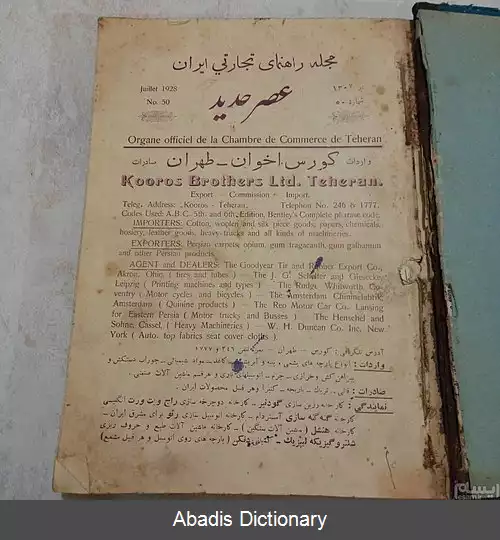 مجله راهنمای تجارتی ایران
Juillet 1928
No. 50
عصر جدید
شماره ۵۰
Organe officiel de la Chambre de Commerce de Teheran
واردات کورس اخوان - طهران صادرات
Kooros Brothers Ltd. Teheran.
Export - Commission - Import.
Teleg. Address: Kooros - Teheran. Telephon No. 246 & 1777.
Codes Used: A.B.C. 5th. and 6th. Edition, Bentley's Complete phrase code.
IMPORTERS: Cotton, woolen and silk piece goods, papers, chemicals,
hosiery, leather goods, heavy trucks and all kinds of machineries.
EXPORTERS: Persian carpets, opium, gum tragacanth, gum galbanum
and other Persian products.
AGENT and DEALERS: The Goodyear Tir and Rubber Export Co.,
Akron, Ohio. ( Tires and tubes ) — The J. G. Schelter and Giesecke,
Leipzig ( Printing machines and types ) The Rudge Whitworth, Co-
ventry ( Motor cycles and bicycles ) — The Amsterdam
Amsterdam ( Quinine products ) — The Reo Motor Car Co., Lansing
for Eastern Persia ( Motor trucks and Busses ) The Henschel and
Sohne, Cassel, ( Heavy Machineries ) — W. H. Duncan Co. Inc. New
York ( Auto. top fabrics seat cover cloths )
آدرس تلگرافی: کورس - طهران - نمره تلفن ۲۴۶ و ۱۷۷۷
واردات: انواع پارچه های پشمی و پنبه و ابریشم، کاغذ، مواد شیمیائی - جوراب دستکش و
پیراهن کش و خرازی - چرم - اتومبیلهای باری و هر قسم ماشین آلات صنعتی.
صادرات: قالی - تریاک - باریجه - کتیرا و هر قسم محصولات ایران.
نمایندگی: کارخانه رزین سازی گودئیر - کارخانه دوچرخه سازی راج ویت ورت انگلیسی
کارخانه گنه گنه سازی آمستردام - کارخانه اتومبیل سازی رئو برای مشرق ایران -
کارخانه هنشل ( ماشین آلات سنگین ) - کارخانه ماشین آلات طبع و حروف ریزی
شلتر و گیزیکه لیپزیک - دنکن ( پارچه های روی اتومبیل و هر قبیل مشمع )
Abadis Dictionary